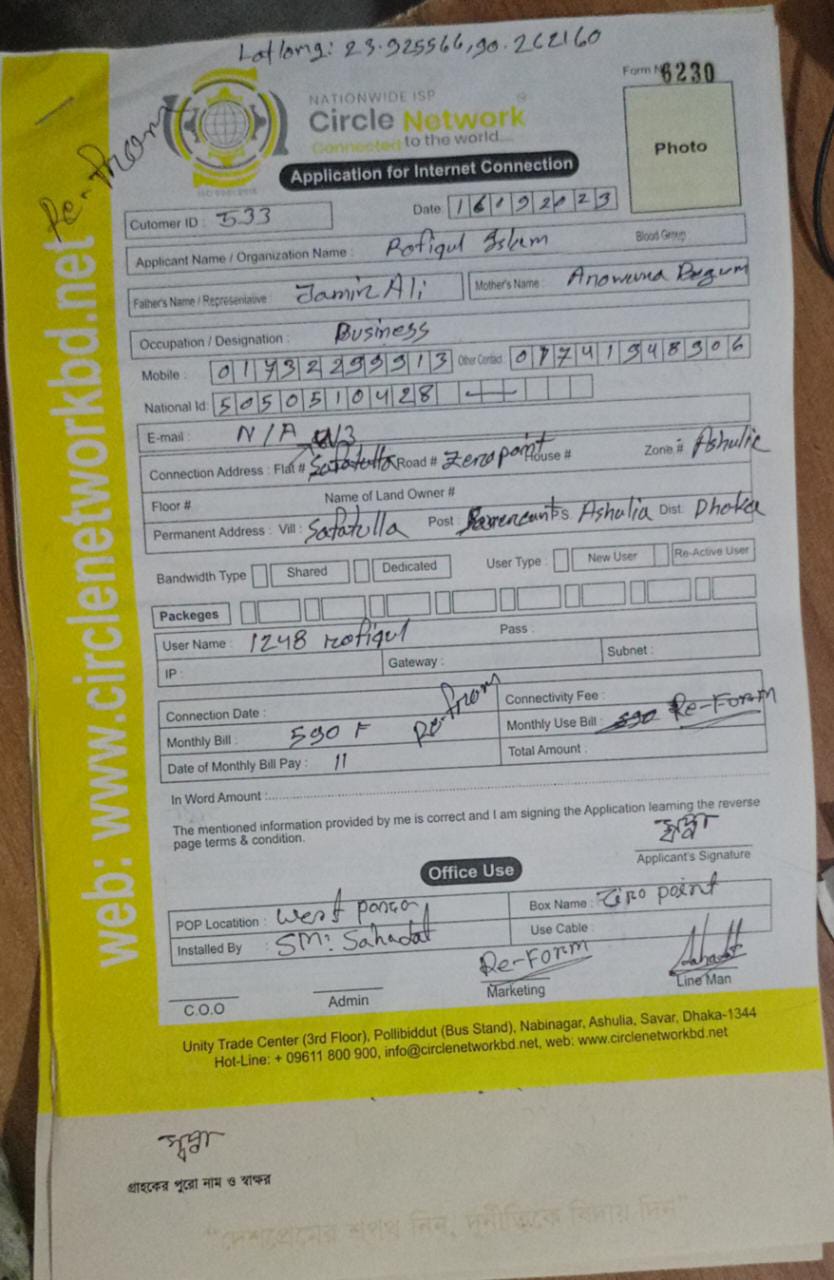 Lat long: 23.925566, 90.262160
Form No 6230
NATIONWIDE ISP
Circle Network
Connected to the world...
Re-from
Photo
Application for Internet Connection
Cutomer ID : 533
Date 16 09 2023
Applicant Name / Organization Name : Rofiqul Islam Blood Group
Father's Name / Representative : Jamir Ali Mother's Name :
Occupation / Designation : Business
Mobile : 01732299913 Other Contact 01741948906
National Id: 5050510428
E-mail : N/A
Connection Address : Flat # Safatulla Road # Zero point House # Zone # Ashulia
Floor # Name of Land Owner #
Permanent Address : Vill : Safatulla Post : Ashulia Dist. Dhaka
Bandwidth Type Shared Dedicated User Type : New User Re-Active User
Packeges
User Name : 1248 rofiqul Pass :
IP : Gateway : Subnet :
Connection Date : Re-from Connectivity Fee :
Monthly Bill : 590 F Monthly Use Bill : 590 Re-Form
Date of Monthly Bill Pay : 11 Total Amount :
In Word Amount :
The mentioned information provided by me is correct and I am signing the Application learning the reverse
page terms & condition.
Applicant's Signature
Office Use
POP Locatition : West Box Name : Ziro point
Installed By : SM: Sahadat Use Cable :
Re-Form Sahadat
C.O.O Admin Marketing Line Man
Unity Trade Center (3rd Floor), Pollibiddut (Bus Stand), Nabinagar, Ashulia, Savar, Dhaka-1344
Hot-Line: + 09611 800 900, info@circlenetworkbd.net, web: www.circlenetworkbd.net
web: www.circlenetworkbd.net
গ্রাহকের পুরো নাম ও স্বাক্ষর
"দেশপ্রেমের শপথ নিন, দুর্নীতিকে বিদায় দিন"